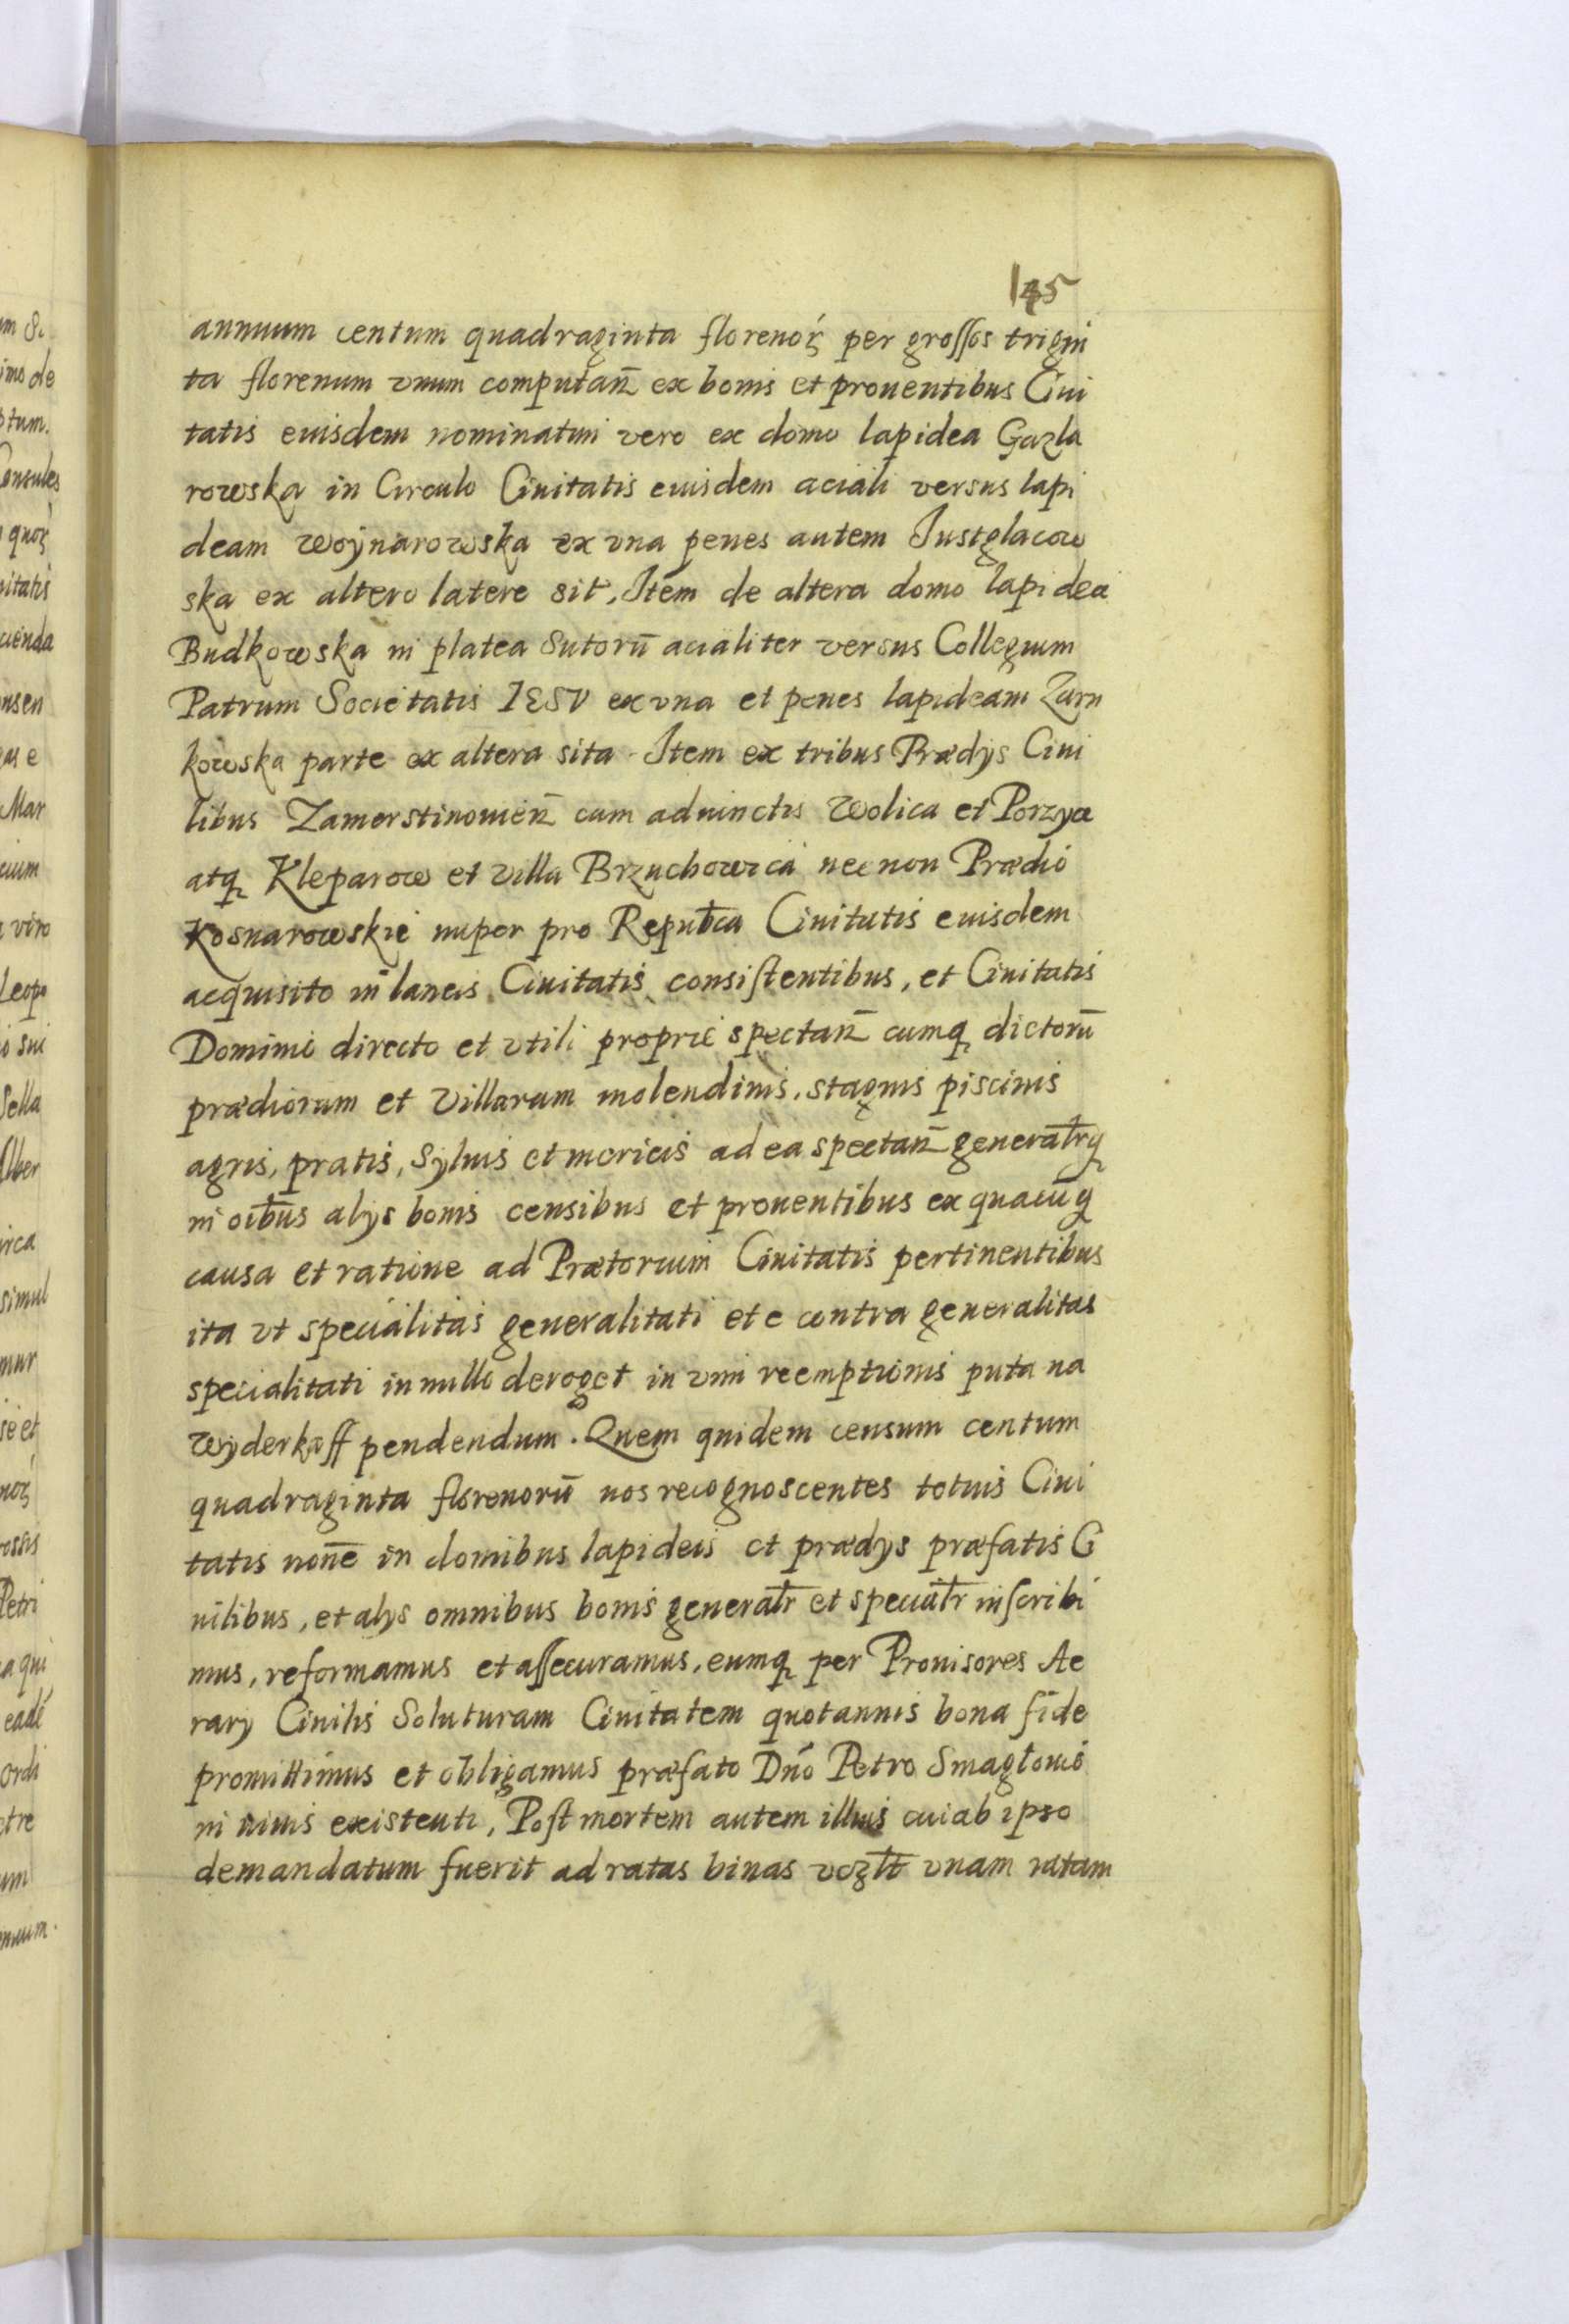 145
annuum centum quadraginta florenoꝝ per grossos trigin
ta florenum vnum computan̄ ex bonis et prouentibus Ciui
tatis eiusdem nominatim vero ex domo lapidea Gazla
rowska in Circulo Ciuitatis eiusdem aciali versus lapi
deam Woÿnarowska ex vna penes autem Justglacow
ska ex altero latere sit, Item de altera domo lapidea
Budkowska in platea Sutorū acialiter versus Collegium
Patrum Societatis IESV ex vna et penes lapideam Zarn
kowska parte ex altera sita Item ex tribus Prædys Ciui
libus Zamerstinouien̄ cum adiunctis Wolica et Porzÿa
atq Kleparow et villa Brzuchowica necnon Prædio
Kosnarowskie nuper pro Repub̄ca Ciuitatis eiusdem
acquisito in laneis Ciuitatis consistentibus, et Ciuitatis
Dominio directo et vtili proprie spectan̄ cumq dictorū
prædiorum et villarum molendinis, stagnis piscinis
agris, pratis, syluis et mericis ad ea spectan̄ generalr̄q
in oib̄us alys bonis censibus et prouentibus ex quacūq
causa et ratione ad Prætorium Ciuitatis pertinentibus
ita vt specialitas generalitati et e contra generalitas
specialitati in nullo deroget in vim reemptionis puta na
Wÿderkaff pendendum. Quem quidem censum centum
quadraginta florenorū nos recognoscentes totius Ciui
tatis noīe in domibus lapideis et prædys præfatis Ci
uilibus, et alys omnibus bonis generalr̄ et specialr̄ inscribi
mus, reformamus et assecuramus, eumq per Prouisores Ae
rary Ciuilis Soluturam Ciuitatem quotannis bona fide
promittimus et obligamus præfato Dn̄o Petro Smagłowi
in viuis existenti, Post mortem autem illius cui ab ipso
demandatum fuerit ad ratas binas vczlt̄ vnam ratam